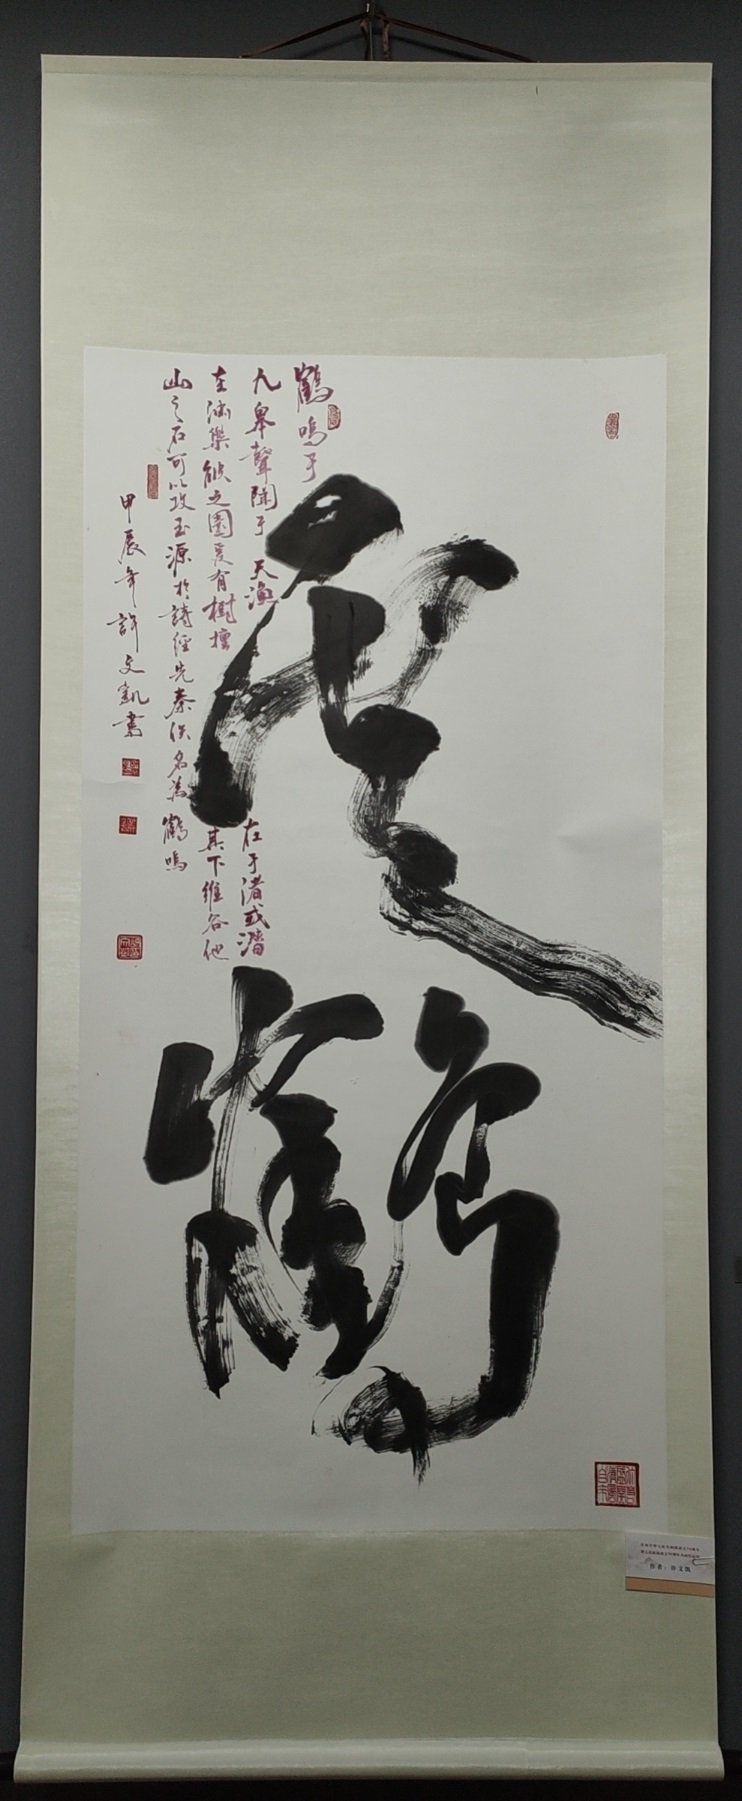 雲鶴
鶴鳴于
九皋聲聞于天漁在于渚或潛
在淵樂彼之園爰有樹檀其下維谷他
山之石可以攻玉源於詩經先秦佚名為鶴鳴
甲辰年許文凱書
作者：许文凯